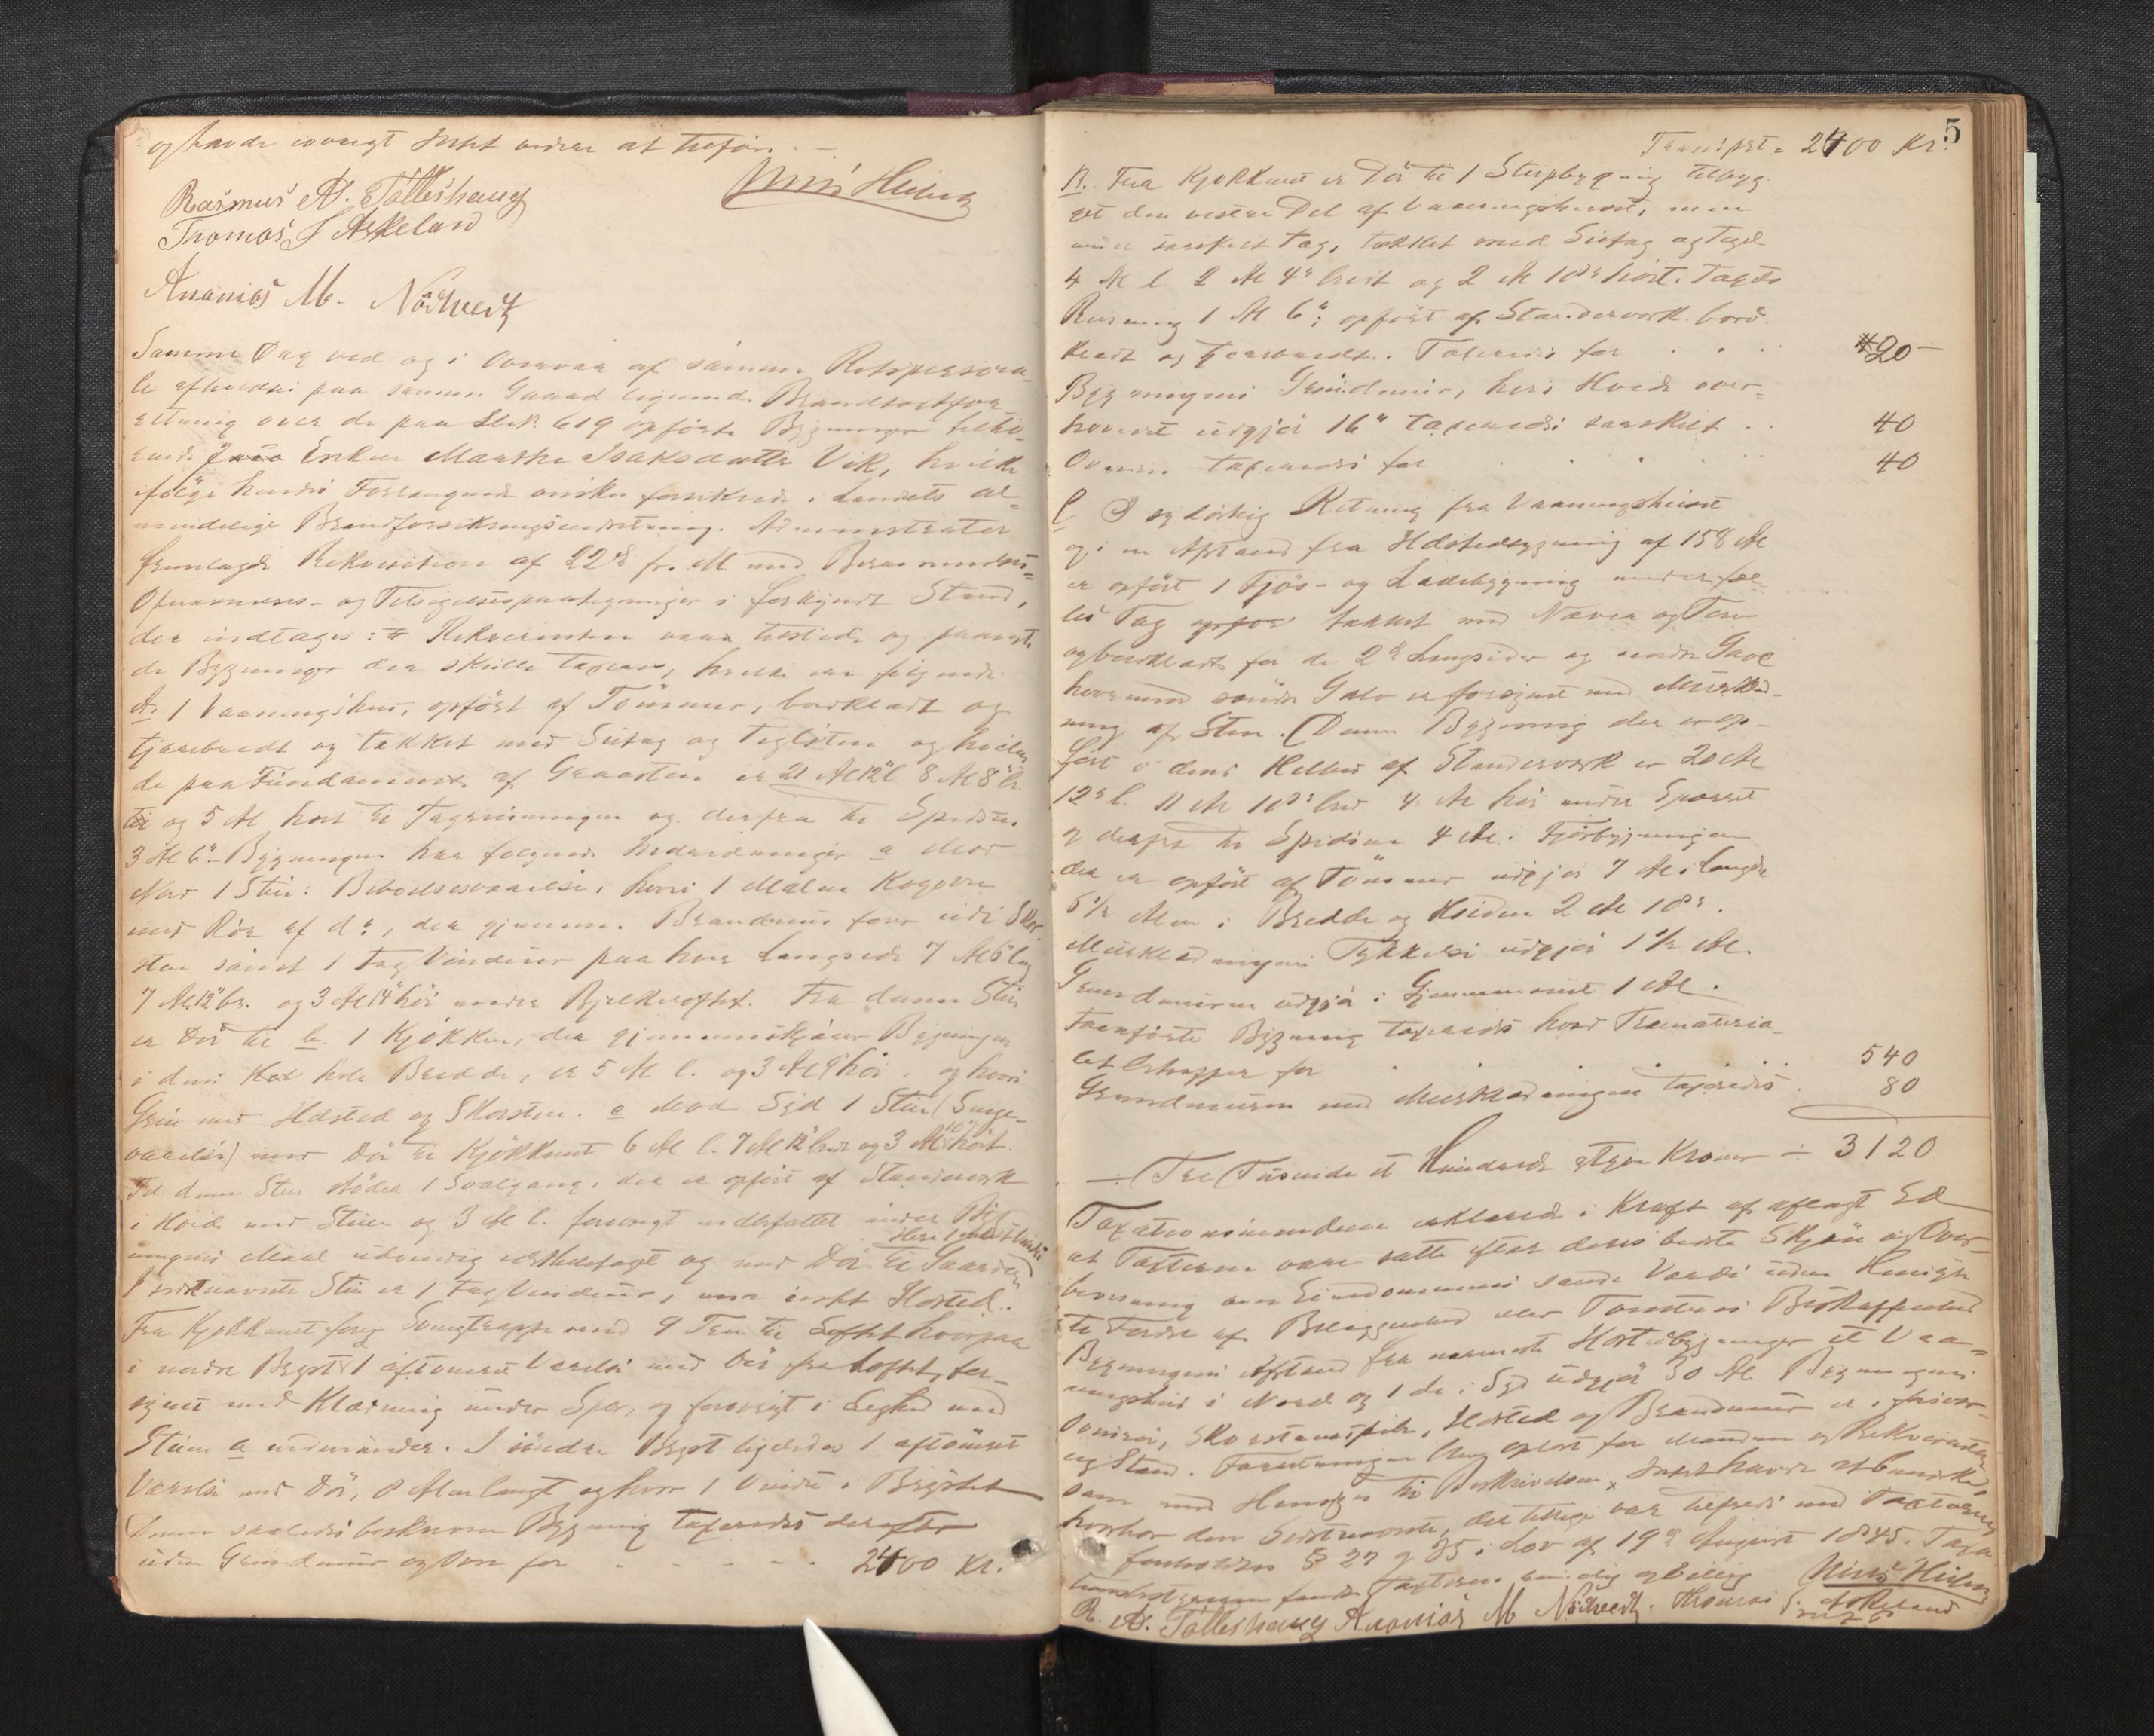 og havde iøvrigt Intet videre at tilføie. –
Rasmus A. Tøtleshaug
Thomas J Askeland
Ananias M. Nödtvedt
Samme Dag ved og i Overvær af samme Retspersona-
le afholdtes paa samme Gaard liggende Brandtaxtfor-
retning over de paa L.No 619 opførte Bygninger tilhø-
rende Enken Marthe Isaksdatter Vik, hvilke
ifølge hendes Forlangende ønskes forsikrede i Landets al-
mindelige Brandforsikringsindretning. Administrator
fremlagde Rekvisition af 22de f. M. med
Opnævnelses- og Tilsigelsespaategninger i forkyndt Stand,
der indtages: # Rekvirenten var tilstede og paaviste
de Bygninger der skulde taxeres, hvilke ere følgende
A. 1 Vaaningshus, opført af Tømmer, bordklædt og
tjærebredt og tækket med Sutag og Teglsten og hvilen-
de paa Fundament af Graasten er 21 Al 12" l. 8 Al 8" br.
og 5 Al høit til Tagreisningen og derfra til Spidsen
3 Al 6". Bygningen har følgende Indredninger a Mod
Nord 1 Stue: Beboelsesværelse, hvori 1 Malm Kogovn
med Rør af do, der gjennem Brandmur fører ud i Skor-
sten samt 1 Fag Vinduer paa hver Langside 7 Al 6" lang
7 Al 12" br. og 3 Al 14" høi under Bjelkeloftet. Fra denne Stue
er Dør til b. 1 Kjøkken, der gjennemskjærer Bygningen
i dens hele Bredde, er 5 Al l. og 3 Al 9" høi, og hvori
Grue med Ildsted og Skorsten. c Mod Syd 1 Stue (Senge-
værelse) med Dør til Kjøkkenet 6 Al l. 7 Al 12" bred og 3 Al 10" høit.
Til denne Stue støder 1 Svalgang, der er opført af Standerverk
i Høide med Stuen og 3 Al l. forøvrigt indbefattet under Byg-
ningens Maal udvendig og med Dør til Gaarden
I sidstnævnte Stue er 1 Fag Vinduer, men intet Ildsted.
Fra Kjøkkenet fører Svingtrappe med 9 Trin til Loftet hvorpaa
i nordre Bryst 1 aftømret Værelse med Dør fra Loftet, for-
synet med Klædning under Sper, og forøvrigt i Lighed med
Stuen a nedenunder. I søndre Bryst ligeledes 1 aftømret
Værelse med Dør, 8 Alen langt og hvor 1 Vindu i Brystet
Denne saaledes beskrevne Bygning taxeredes derefter
uden Grundmur og Ovn for - - - - - 2400 Kr.
5
Transport = 2400 Kr.
B. Fra Kjøkkenet er Dør til 1 Skrapbygning tilbyg-
get den vestre Del af Vaaningshuset, men
under særskilt Tag, tækket med Sutag og Tegl
4 Al l. 2 Al 4" bred og 2 Al 10" høit. Tagets
Reisning 1 Al 6"; opført af Standerverk bord-
klædt og tjærebredt. Taxeredes for . . . 20 –
Bygningens Grundmur, hvis Høide over-
hovedet udgjør 16" taxeredes særskilt . . 40
Ovnen taxeredes for . . . 40
C. I sydøstlig Retning fra Vaaningshuset
og i en Afstand fra Ildstedbygning af 158 Al
er opført 1 Fjøs- og Ladebygning under fæl-
les Tag tækket med Næver og Torv
og bordklædt for de 2de Langsider og nordre Gavl
hvorimod søndre Gavl er forsynet med Murklæd-
ning af Sten. (Denne Bygning der er op-
ført i dens Helhed af Standerværk er 20 Al
12" l. 11 Al 10" bred 4 Al høi under Sparret
og derfra til Spidsen 4 Al. Fjøsbygningen
der er opført af Tømmer udgjør 7 Al i Længde
6½ Alen i Bredde og Høiden 2 Al 10".
Murklædningens Tykkelse udgjør 1½ Al.
Grundmuren udgjør i Gjennemsnit 1 Al.
Foranførte Bygning taxeredes hvad Træmateria-
let betræffer for . . . . . 540
Grundmuren med Murklædningen taxeredes . 80
÷ Tre Tusinde et Hundrede og tyve Kroner ÷ 3120
Taxationsmændene erklærede i Kraft af aflagt Ed
at Taxterne vare satte efter deres bedste Skjøn og Over-
bevisning om Eiendommens sande Værdi uden Hensigt
til Fordel af Beliggenhed eller Tomtens Beskaffenhed
Bygningens Afstand fra nærmeste Ildstedbygninger et Vaa-
ningshus i Nord og 1 do i Syd udgjør 30 Al. Bygningens
Ovnsrør, Skorstenspibe, Ildsted og Brandmur er i forsvar-
lig Stand. Forretningen blev oplæst for Mændene og Rekvirenten,
som med Hensyn til Beskrivelsen Intet havde at bemærke,
hvorhos den Sidstnævnte, der tillige var tilfreds med Taxterne
foreholdtes § 27 og 35 i Lov af 19de August 1845. Taxa-
R. A. Tøtleshaug Ananias M Nödtvedt. Thomas J. Askeland